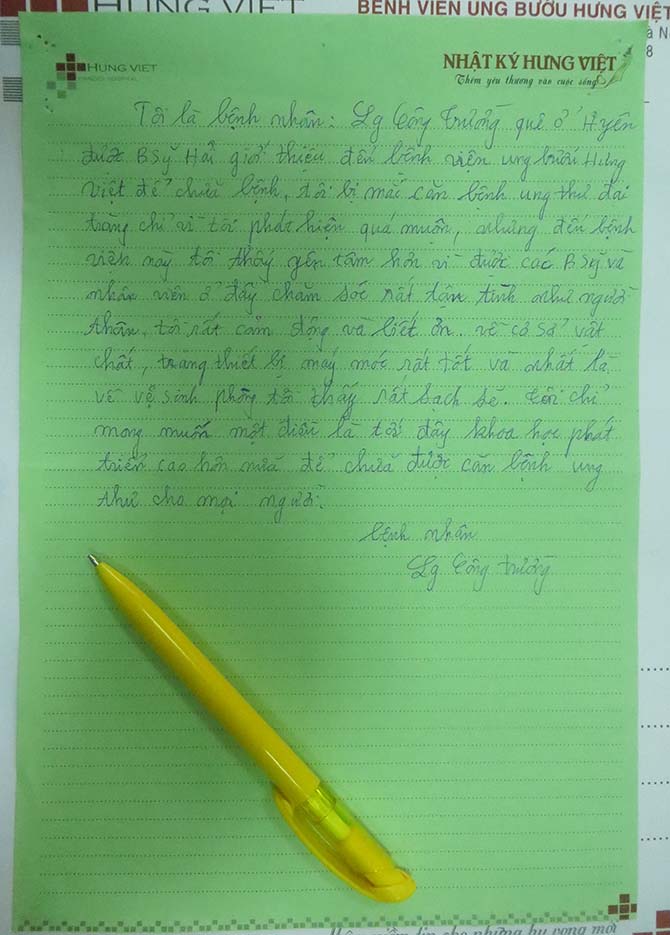 HUNG VIET
BỆNH VIỆN UNG BƯỚU HƯNG VIỆT
8
HUNG VIET
NHẬT KÝ HƯNG VIỆT
Thêm yêu thương vào cuộc sống
Tôi là bệnh nhân: Lg Công Trường quê ở Hyên
được BSỹ Hải giớ thiệu đến bệnh viện ung bướu Hưng
Việt để chưã bệnh, tôi bị mắc căn bệnh ung thư đại
tràng chỉ vì tôi phát hiện quá muộn, nhưng đến bệnh
viện này tôi thấy yên tâm hơn vì được các BSỹ và
nhân viên ở đây chăm sóc rất tận tình như người
thân, tôi rất cảm động và biết ơn. về cơ sở vật
chất, trang thiết bị máy móc rất tốt và nhất là
về vệ sinh phòng tôi thấy rất sạch sẽ. tôi chỉ
mong muốn một điều là tới đây khoa học phát
triển cao hơn nữa để chưã được căn bệnh ung
thư cho mọi người.
bệnh nhân
Lg Công trường
niềm tin cho những hy vọng mới